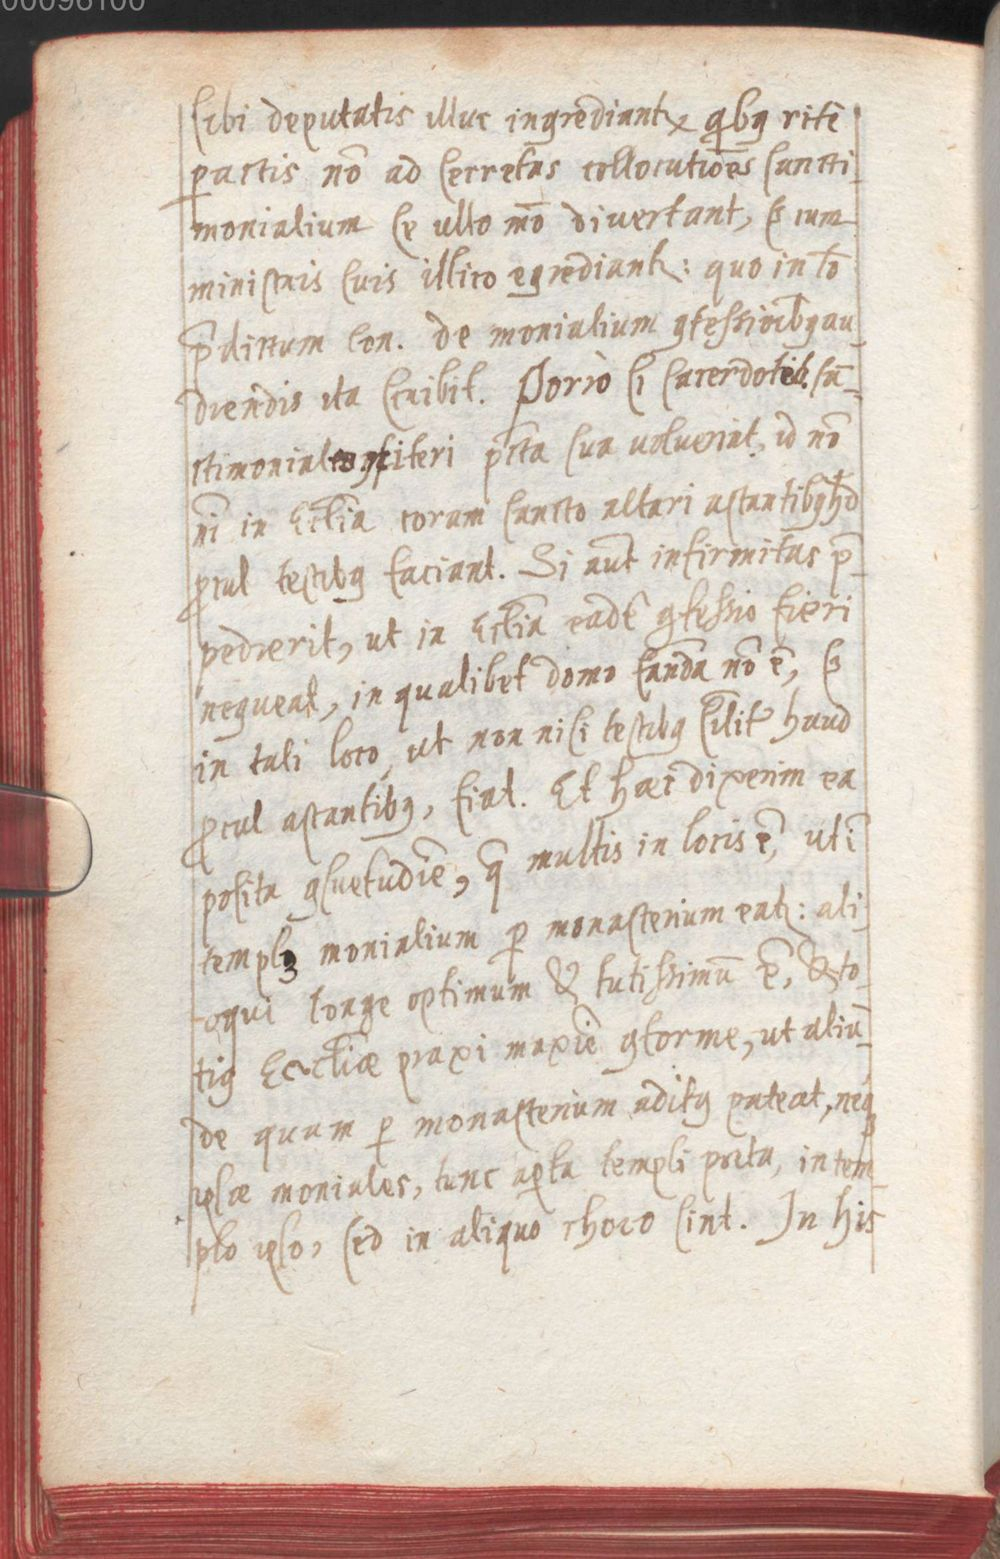 00096100
sibi deputatis illuc ingrediantꝛ qꝫbꝰ ritè
ꝑactis nō ad secretas collocutiōes sancti-
monialium se ullo mō divertant, sꝫ cum
ministris suis illico egrediantꝛ: quo in lō
p̄dictum Con. de monialium ꝯfessioībꝰ au-
diendis ita scribit. Porrò si sacerdotib. sā-
ctimoniales ꝯfiteri pctā sua voluerint, id nō
ni in Ecclīa coram sancto altari astantibꝰ hd
ꝓcul testibꝰ faciant. Si aut infirmitas p̄-
pedierit, ut in Ecclīa eadē ꝯfessio fieri
nequeat, in qualibet domo faciēda nō ē, sꝫ
in tali loco, ut non nisi testibꝰ silit haud
ꝓcul astantibꝰ, fiat. Et hæc dixerim ea
posita ꝯsuetudīe, q̄ multis in locis ē, ut ī
templꝫ monialium ꝑ monasterium eatꝛ: ali-
oqui longe optimum & tutissimū ē, & to-
tiꝰ Ecclīæ praxi maxīe ꝯforme, ut aliū-
de quam ꝑ monasterium aditꝰ pateat, neqꝫ
ipsæ moniales, tunc aꝑta templi porta, in tem-
plo ipso, sed in aliquo choro sint. In his